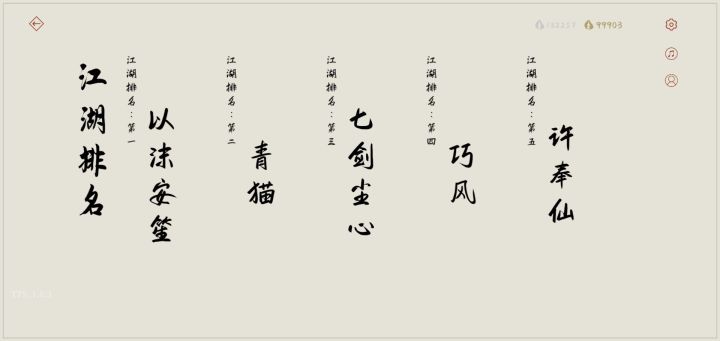 132257
99903
江湖排名
江湖排名：第一
以沫安笙
江湖排名：第二
青猫
江湖排名：第三
七剑尘心
江湖排名：第四
巧风
江湖排名：第五
许奉仙